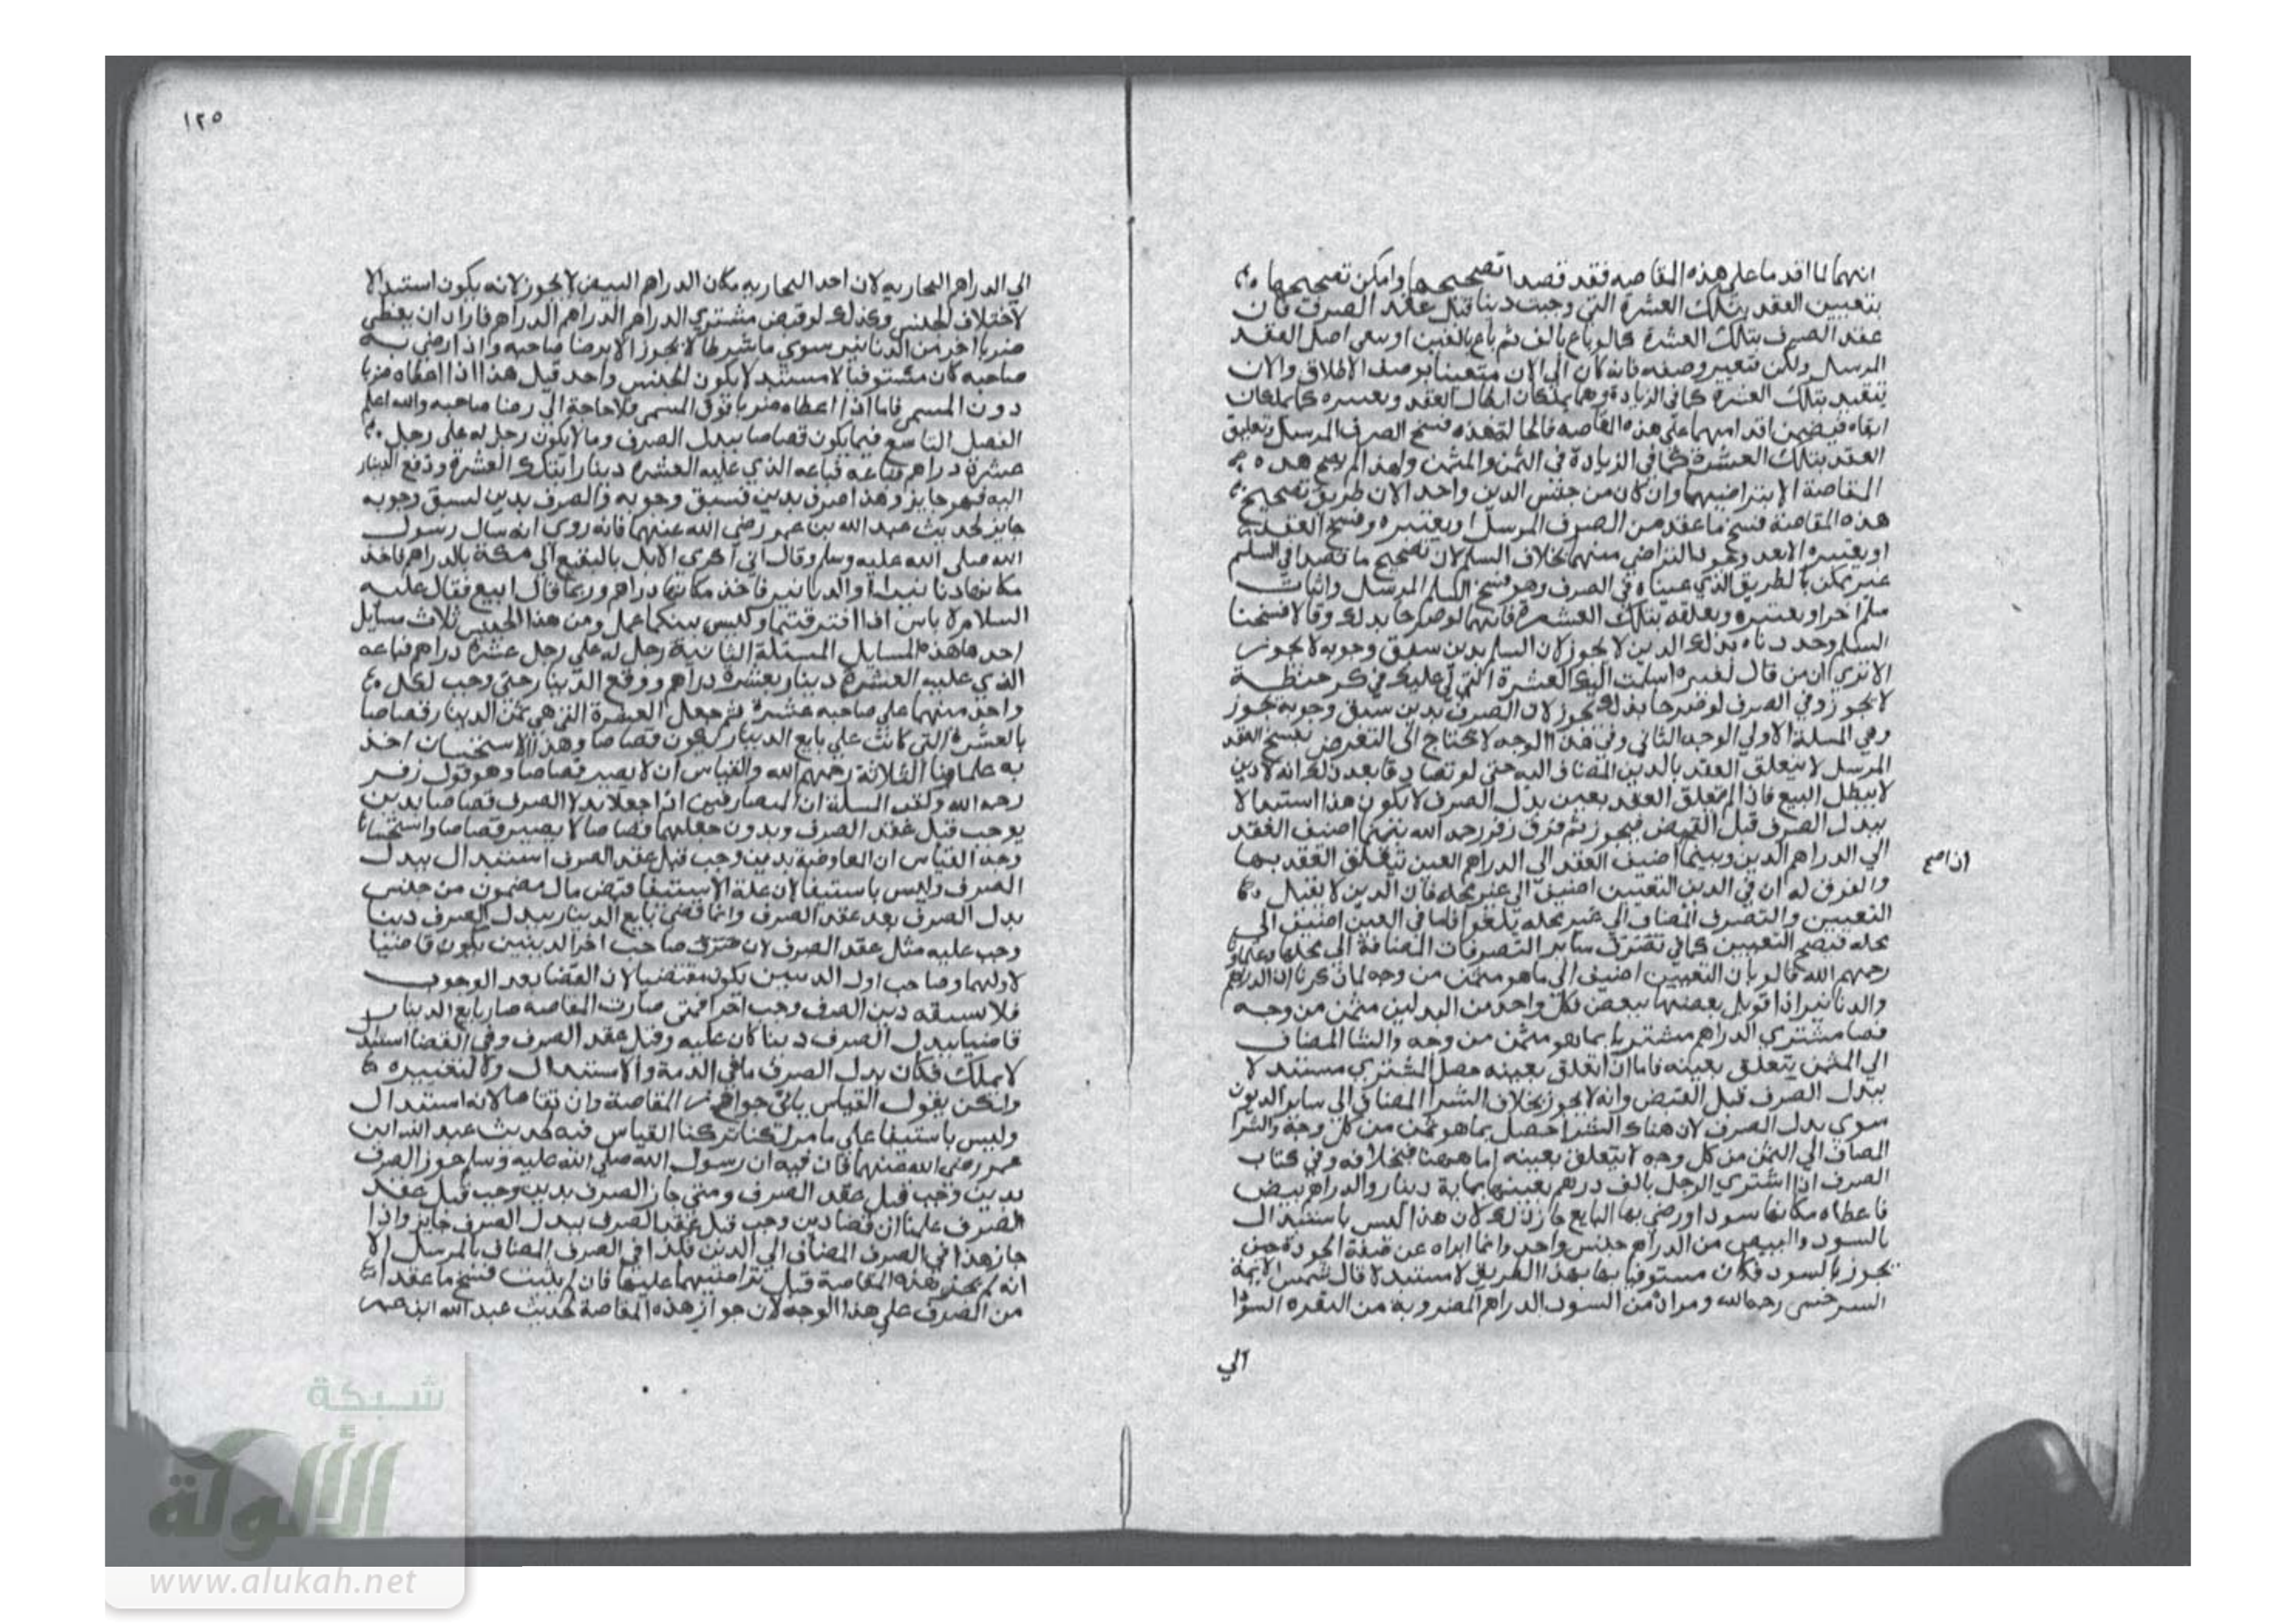 انهما لما اقدما على هذه المقاصه فقد قصدا تصحيحها وامكن تصحيحها
بتعيين العقد بتلك العشرة التي وجبت دينا قبل عقد الصرف فان
عقد الصرف بتلك العشرة كما لو باع بالف ثم باع بالفين او يبقى اصل العقد
المرسل ولكن تتغير وصفه فانه كان الى الان متعينا بوصف الاطلاق والان
يتقيد بتلك العشرة كما في الزيادة وهما يملكان ابطال العقد وتغييره كما يملكان
ابقاه فيضمن اقدامهما على هذه المقاصه فسخ الصرف المرسل وتعليق
العقد بتلك العشرة كما في الزيادة في الثمن والمثمن ولهذا لم يصح هذه
المقاصة الا بتراضيهما وان كان من جنس الدين واحد الان طريق تصحيح
هذه المقاصة فسخ ما عقد من الصرف المرسل او يغتيره وفسخ العقد
او يغتيره لابعد وكونا لتراضي منهما بخلاف السلم لان تصحيح ما قصدا في السلم
غير ممكن بالطريق الذي عيناه في الصرف وهو فسخ السلم المرسل واثبات
سلما اخر او يغتيره ويعلقه بتلك العشرة فانهما لو صرحا بذلك وقالا فسخنا
السلم وجددناه بذلك الدين لا يجوز لان السلم بدين سبق وجوبه لا يجوز
الا ترى ان من قال لغيره اسلمت اليك العشرة التي لي عليك في كر حنطة
لا يجوز وفي الصرف لو صرحا بذلك يجوز لان الصرف بدين سبق وجوبه يجوز
وفي المسلة الاولي الوجه الثاني وفي هذا الوجه لا يحتاج الى التعرض بفسخ العقد
المرسل لا يتعلق العقد بالدين المضاف اليه حتى لو تصادقا بعد ذلك انه لا دين
لا يبطل البيع فاذا لم يتعلق العقد بعين بدل الصرف لا يكون هذا استبدالا
ببدل الصرف قبل القبض فيجوز ثم فرق زفر رحمه الله بينهما اضيف العقد
الي الدراهم الدين وبينما اضيف العقد الى الدراهم العين يتعلق العقد بها
ان اصح
والفرق له ان في الدين التعيين اضيف الى غير محله فان الدين لا يقبل
التعيين والتصرف المضاف الى غير محله يلغو اما في العين اضيف الى
محله فيصح التعيين كما في سائر التصرفات المضافة الى محلها وعلماونا
رحمهم الله قالوا بان التعيين اضيف الى ما هو مثمن من وجه لما ذكرنا ان الدراهم
والدنانير اذا قوبل بعضها ببعض فكل واحد من البدلين مثمن من وجه
فصا مشتري الدراهم مشتريا بما هو مثمن من وجه والشرا المضاف
الي المثمن يتعلق بعينه فاما ان اتعلق بعينه حصل المشتري مستبدلا
ببدل الصرف قبل القبض وانه لا يجوز بخلاف الشرا المضاف الى ساير الديون
سوى بدل الصرف لان هناك الشرا حصل بما هو ثمن من كل وجه والشرا
المضاف الي الثمن من كل وجه لا يتعلق بعينه اما ههنا فبخلافه وفي كتاب
الصرف اذا اشتري الرجل بالف درهم بعينها بماية دينار والدراهم بيض
فاعطاه مكانها سودا ورضي بها البايع جاز ذلك لان هذا ليس باستبدال
بالسود والبيض من الدراهم جنس واحد وانما ابراه عن صفة الجودة حين
يجوز بالسود فكان مستوفيا بها بهذا الطريق لا مستبدلا قال شمس الايمة
السرخسي رحمه الله ومراده من السود الدراهم المضروبة من النقره السودا
الي
١٢٥
الي الدراهم البخاريه لان اخذ البخاريه مكان الدراهم البيض لا يجوز لانه يكون استبدالا
لاختلاف الجنس وكذلك لو قبض مشتري الدراهم الدراهم فاراد ان يعطي
ضربا اخر من الدنانير سوى ما شرطا لا يجوز الا برضا صاحبه واذا رضي به
صاحبه كان مستوفيا لا مستبدلا يكون الجنس واحد قيل هذا اذا اعطاه ضربا
دون المسمى فاما اذا اعطاه ضربا فوق المسمى فلا حاجة الى رضا صاحبه والله اعلم
الفصل التاسع فيما يكون قصاصا ببدل الصرف وما لا يكون رجل له على رجل
عشرة دراهم فباعه الذي عليه العشرة دينارا بتلك العشرة ودفع الدينار
اليه فهو جايز وهذا صرف بدين فسبق وجوبه والصرف بدين لسبق وجوبه
جايز لحديث عبد الله بن عمر رضي الله عنهما فانه روي انه سال رسول
الله صلى الله عليه وسلم وقال اني اكري الابل بالبقيع الي مكة بالدراهم فاخذ
مكانها دنانير او الدنانير فاخذ مكانها دراهم وربما قال ابيع فقال عليه
السلام لا باس اذا افترقتما وليس بينكما عمل ومن هذا الجنس ثلاث مسايل
احدها هذه المسايل المسئلة الثانية رجل له علي رجل عشرة دراهم فباعه
الذي عليه العشرة دينار بعشرة دراهم ودفع الدينار حتى وجب لكل
واحد منهما علي صاحبه عشرة ثم جعلا العشرة التي هي ثمن الدينار قصاصا
بالعشرة التي كانت علي بايع الدينار يكون قصاصا وهذا الاستحسان اخذ
به علماونا الثلاثة رحمهم الله والقياس ان لا يصير قصاصا وهو قول زفر
رحمه الله ولقب المسلة ان المتصارفين اذا جعلا بدلا الصرف قصاصا بدين
يوجب قبل عقد الصرف وبدون جعلهما قصاصا لا يصير قصاصا واستحسانا
وجه القياس ان المعاوضة بدين وجب قبل عقد الصرف استبدال ببدل
الصرف وليس باستيفا لان علة الاستيفا قبض مال مضمون من جنس
بدل الصرف بعد عقد الصرف وانما قضى بايع الدينار ببدل الصرف دينا
وجب عليه مثل عقد الصرف لان صاحب اخر الدينين يكون قاضيا
لاولهما وصاحب اول الدينين يكون مقتضيا لان القضا بعد الوجوب
فلا سبقه دين الصرف وجب اخرا فمتى صارت المقاصه صار بايع الدينار
قاضيا ببدل الصرف دينا كان عليه وقبل عقد الصرف وفي القضا استبد
لا يملك فكان بدل الصرف ما في الذمة والاستبدال ولا لتغييره
ونحن نقول القياس يابى جواز المقاصة وان تقاصا لانه استبدال
وليس باستيفا على ما مر لكنا تركنا القياس فيه لحديث عبد الله ابن
عمر رضي الله عنهما فان فيه ان رسول الله صلي الله عليه وسلم جوز الصرف
بدين وجب قبل عقد الصرف ومتى جاز الصرف بدين وجب قبل عقد
الصرف علمنا ان قضا دين وجب قبل عقد الصرف ببدل الصرف جايز واذا
جاز هذا في الصرف المضاف الي الدين فكذا في الصرف المضاف بالمرسل الا
انه لم يجز هذه المقاصة قبل تراضيهما عليها فان لم يثبت فسخ ما عقدا
من الصرف علي هذا الوجه لان جواز هذه المقاصة لحديث عبد الله ابن عمر
شبكة
الألوكة
www.alukah.net